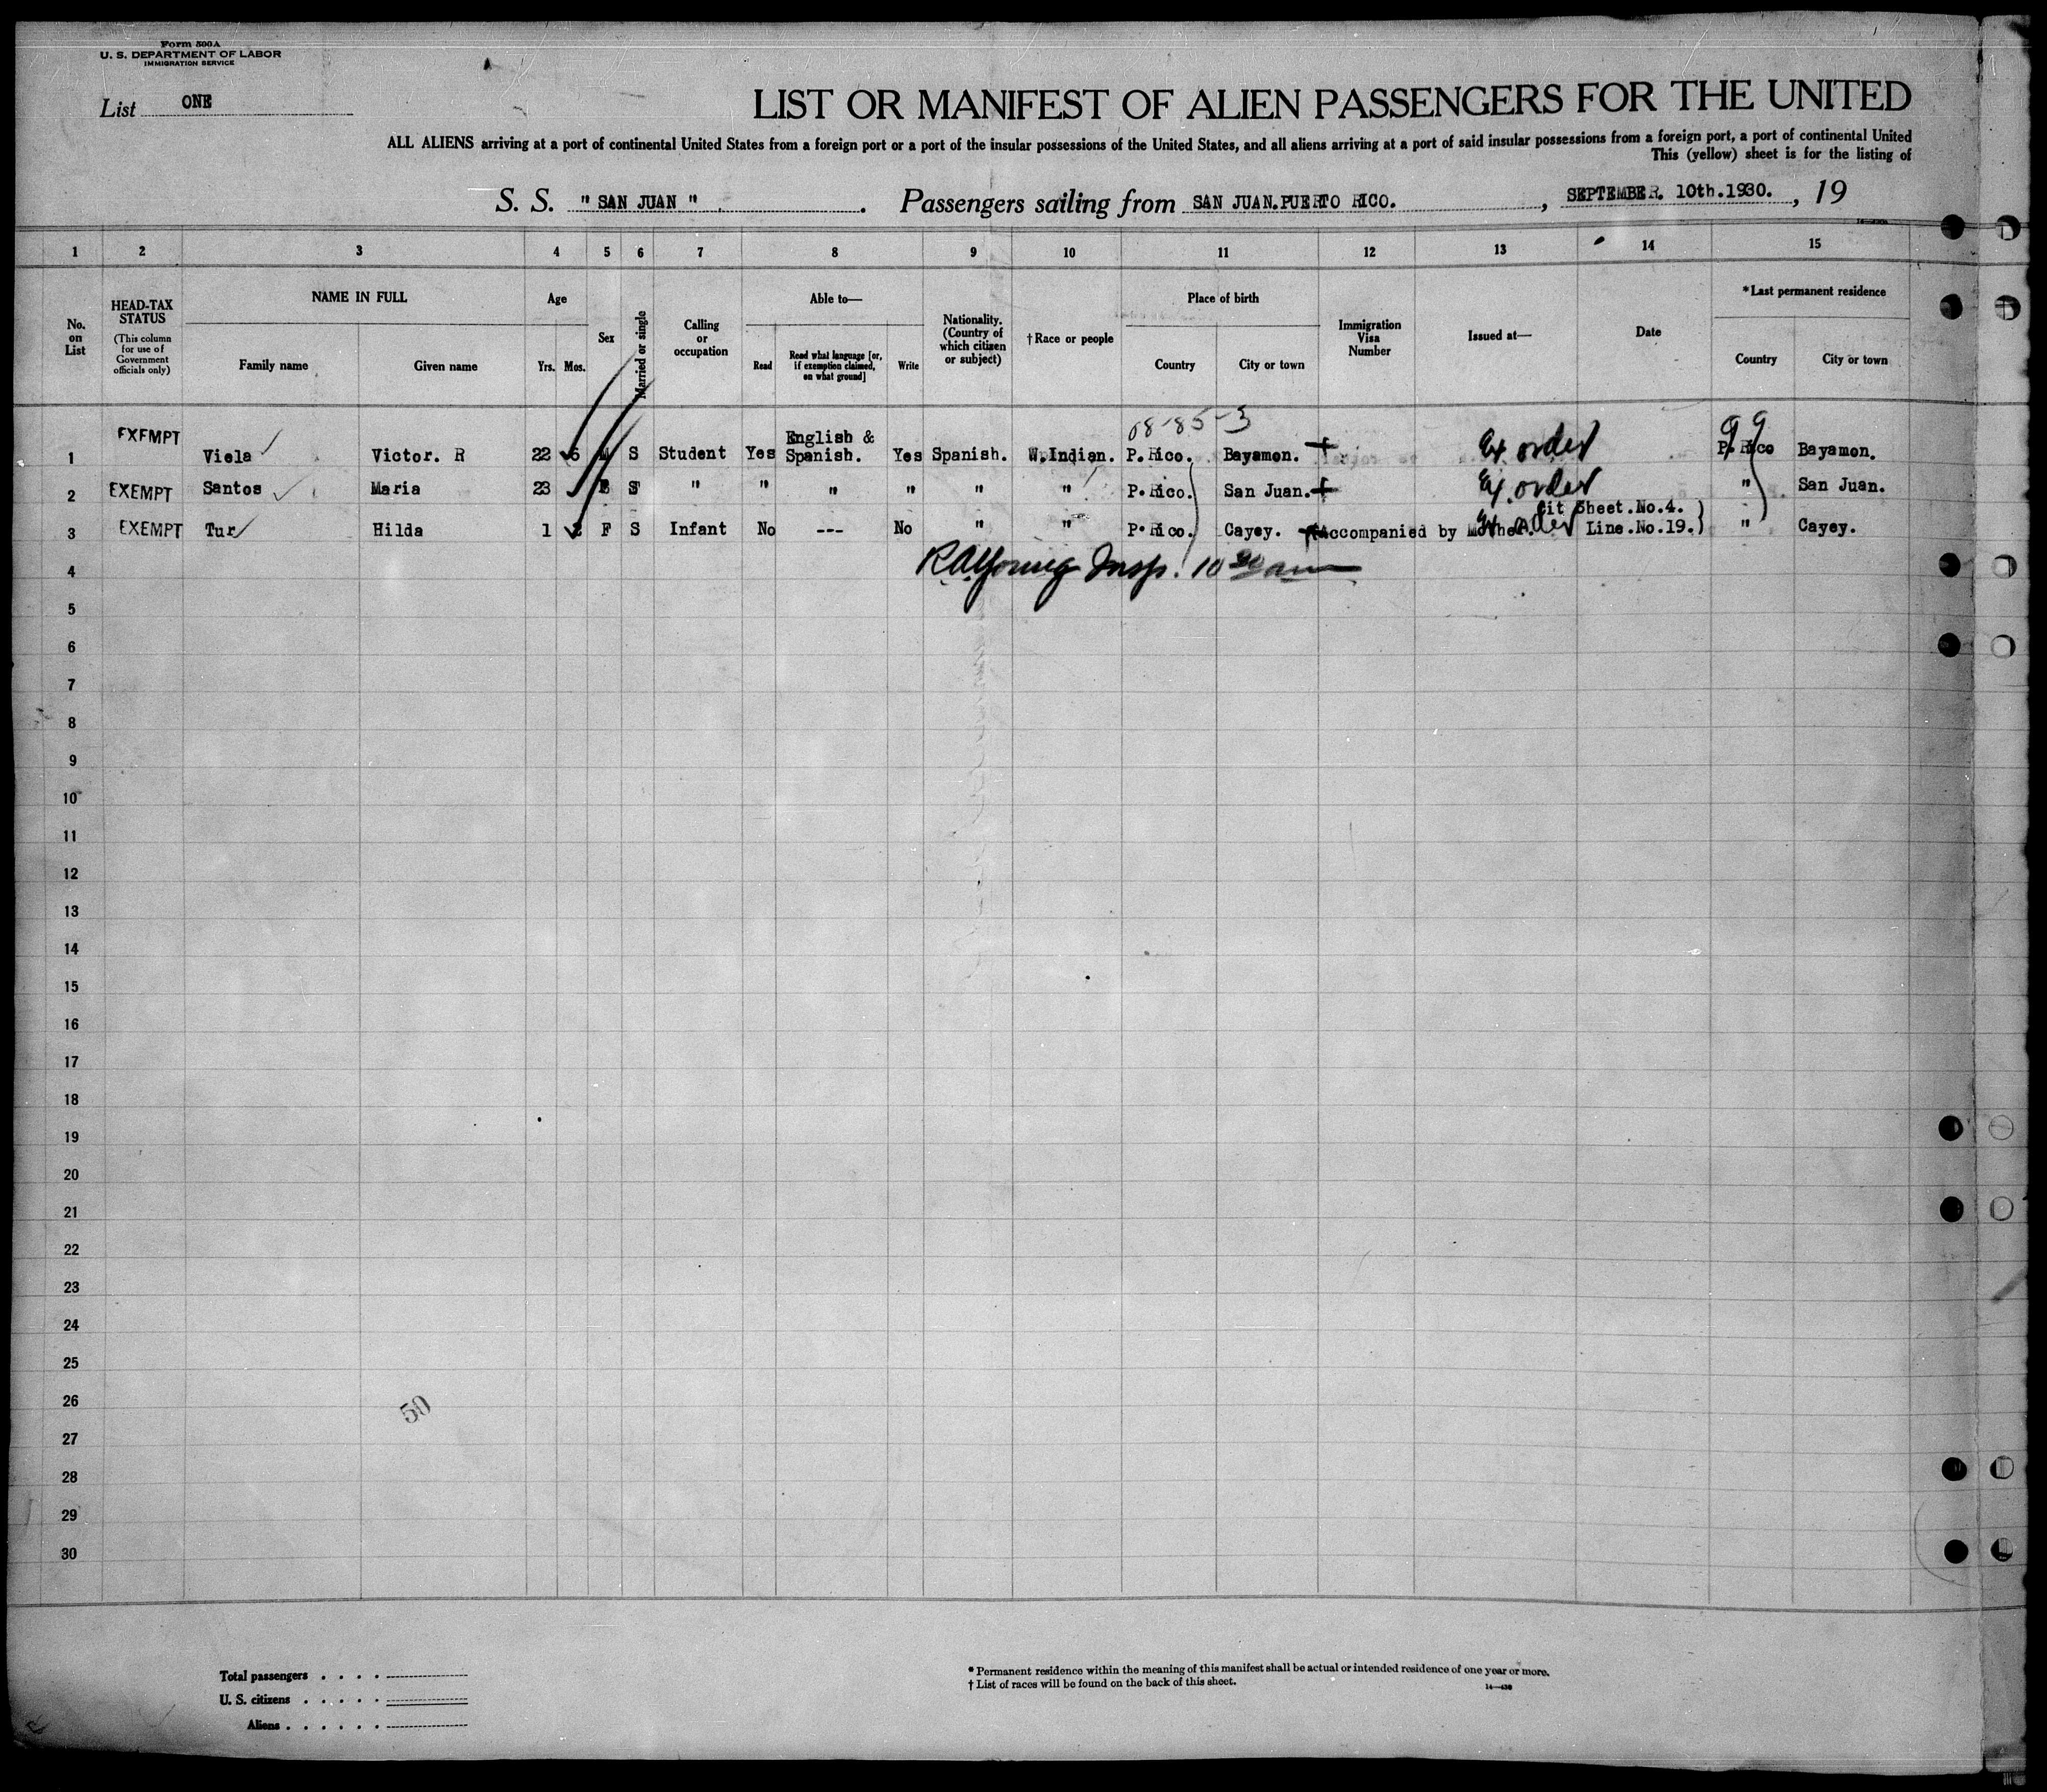 Form 500A
U. S. DEPARTMENT OF LABOR
IMMIGRATION SERVICE
List ONE
LIST OR MANIFEST OF ALIEN PASSENGERS FOR THE UNITED
ALL ALIENS arriving at a port of continental United States from a foreign port or a port of the insular possessions of the United States, and all aliens arriving at a port of said insular possessions from a foreign port, a port of continental United
This (yellow) sheet is for the listing of
S. S. " SAN JUAN " . Passengers sailing from SAN JUAN.PUERTO RICO. , SEPTEMBER. 10th.1930. , 19
1 2 3 4 5 6 7 8 9 10 11 12 13 14 15
No. on List
HEAD-TAX STATUS
(This column for use of Government officials only)
NAME IN FULL
Family name Given name
Age
Yrs. Mos.
Sex
Married or single
Calling or occupation
Able to—
Read
Read what language [or, if exemption claimed, on what ground]
Write
Nationality. (Country of which citizen or subject)
† Race or people
Place of birth
Country City or town
Immigration Visa Number
Issued at—
Date
*Last permanent residence
Country City or town
08-85-3
99
1 EXEMPT Viela Victor. R 22 6 M S Student Yes English & Spanish. Yes Spanish. W.Indian. P.Rico. Bayamon. Ex. order P.Rico Bayamon.
2 EXEMPT Santos Maria 23 S " " " " " " P.Rico. San Juan. Ex. order " San Juan.
3 EXEMPT Tur Hilda 1 2 F S Infant No --- No " " P.Rico. Cayey. (Accompanied by Mother. Cit Sheet.No.4. Line.No.19.) Ex. order " Cayey.
4 RA Young Insp. 10 30 am
5
6
7
8
9
10
11
12
13
14
15
16
17
18
19
20
21
22
23
24
25
26
27
28
29
30
50
Total passengers . . . .
U. S. citizens . . . . .
Aliens . . . . . .
* Permanent residence within the meaning of this manifest shall be actual or intended residence of one year or more.
† List of races will be found on the back of this sheet.
14—430